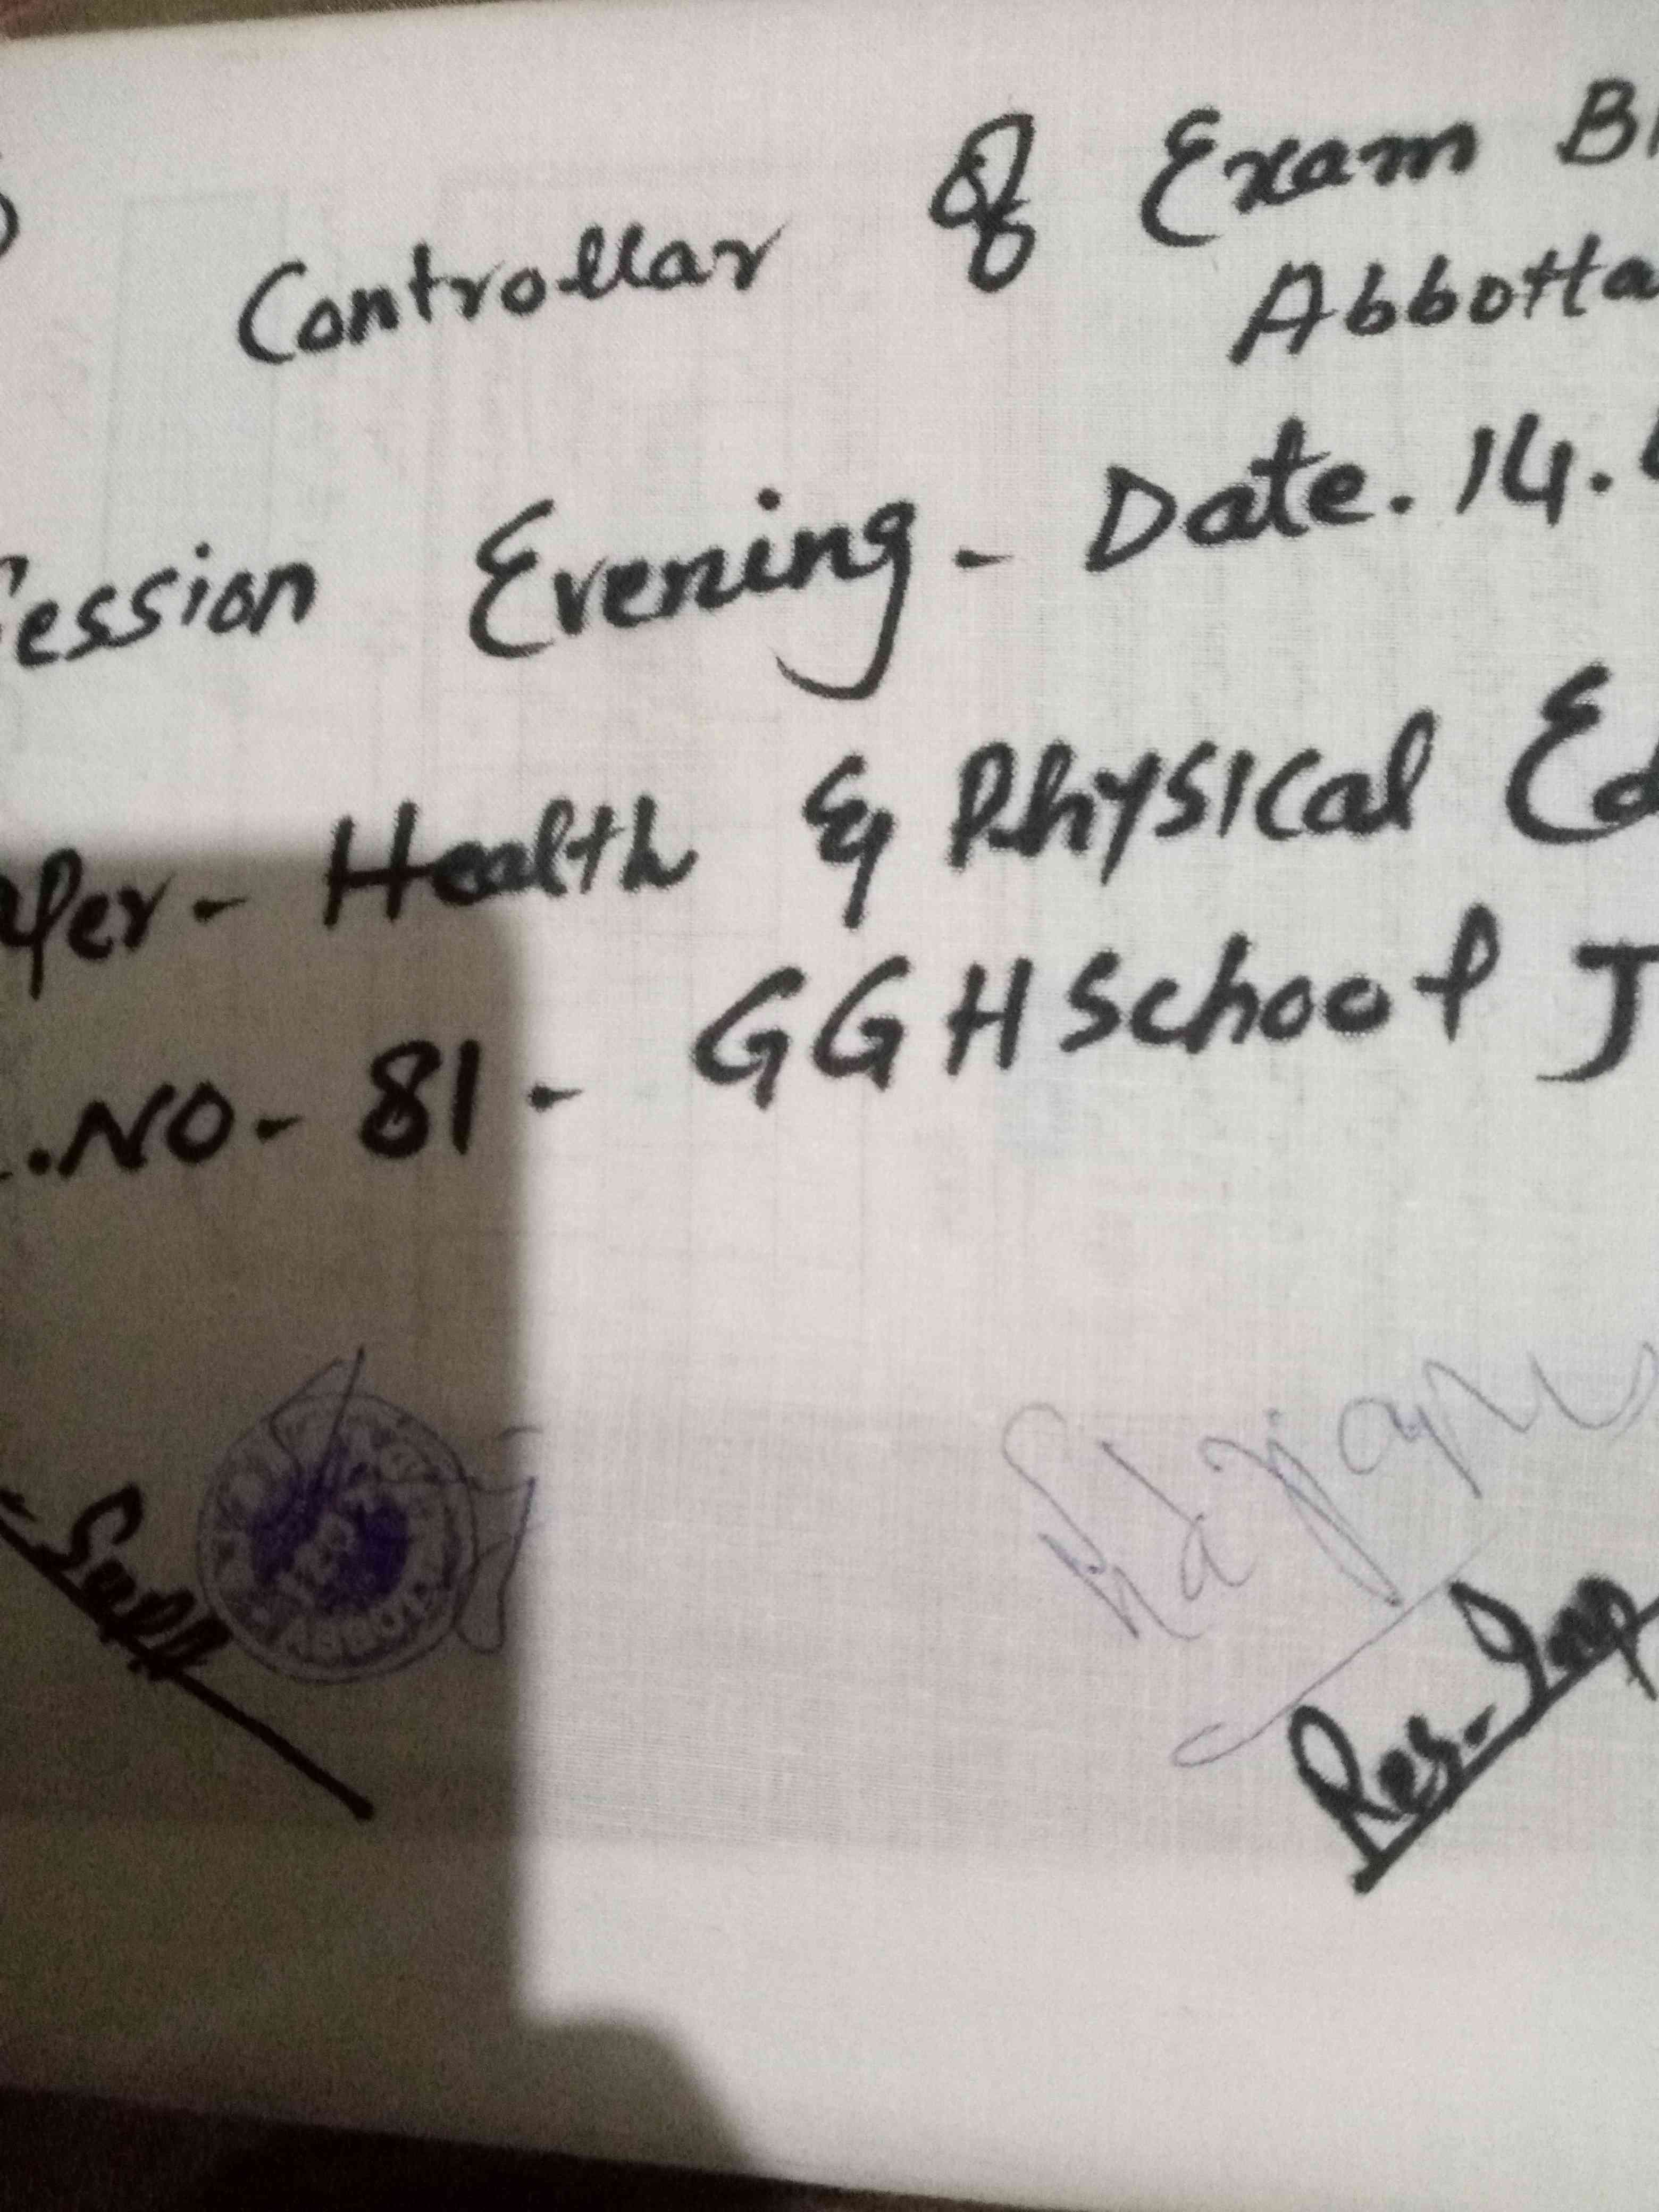 Controllar Of Exam BI
Abbotta
Session Evening - Date. 14.
aper - Health & Physical Ed
.NO - 81 - GGHSchool J
Supdt
Res. Insp